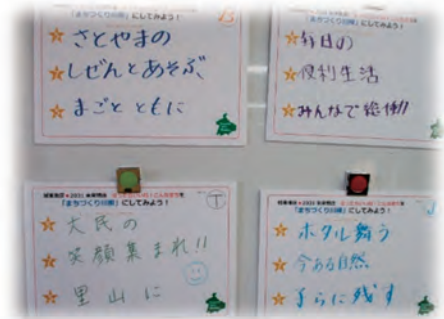 「まちづくり川柳」にしてみよう！
さとやまの
しぜんとあそぶ
まごとともに
「まちづくり川柳」にしてみよう！
毎日の
便利生活
みんなで総伸!!
「まちづくり川柳」にしてみよう！
T
大民の
笑顔集まれ!!
里山に
「まちづくり川柳」にしてみよう！
J
ホタル舞う
今ある自然
子らに残す